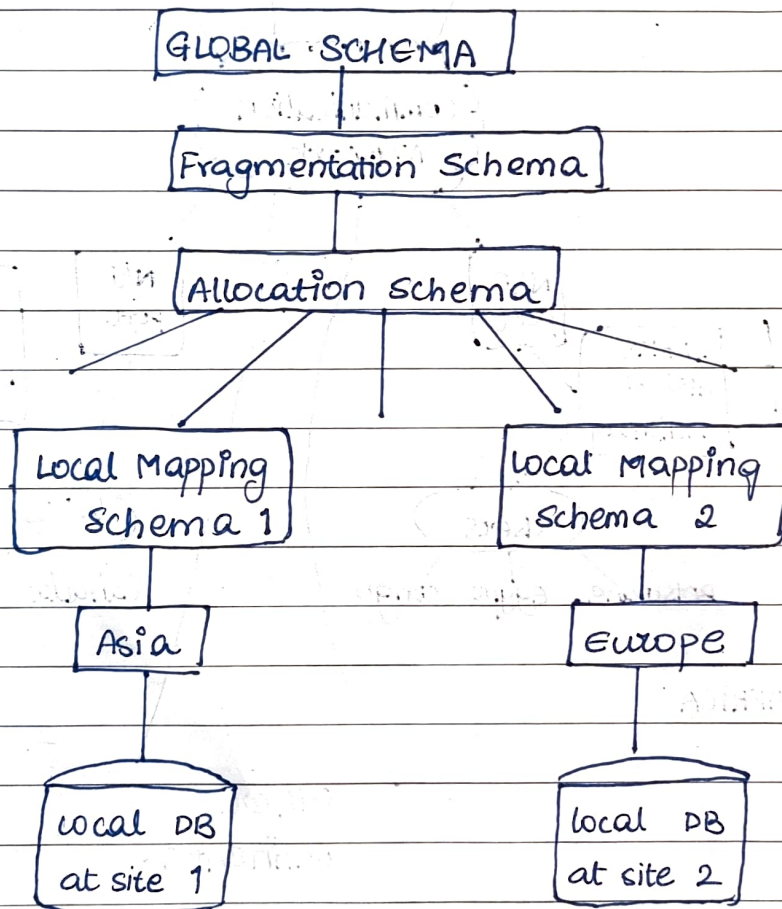 GLOBAL SCHEMA
Fragmentation Schema
Allocation Schema
Local Mapping
Schema 1
Local Mapping
Schema 2
Asia
Europe
Local DB
at site 1
Local DB
at site 2